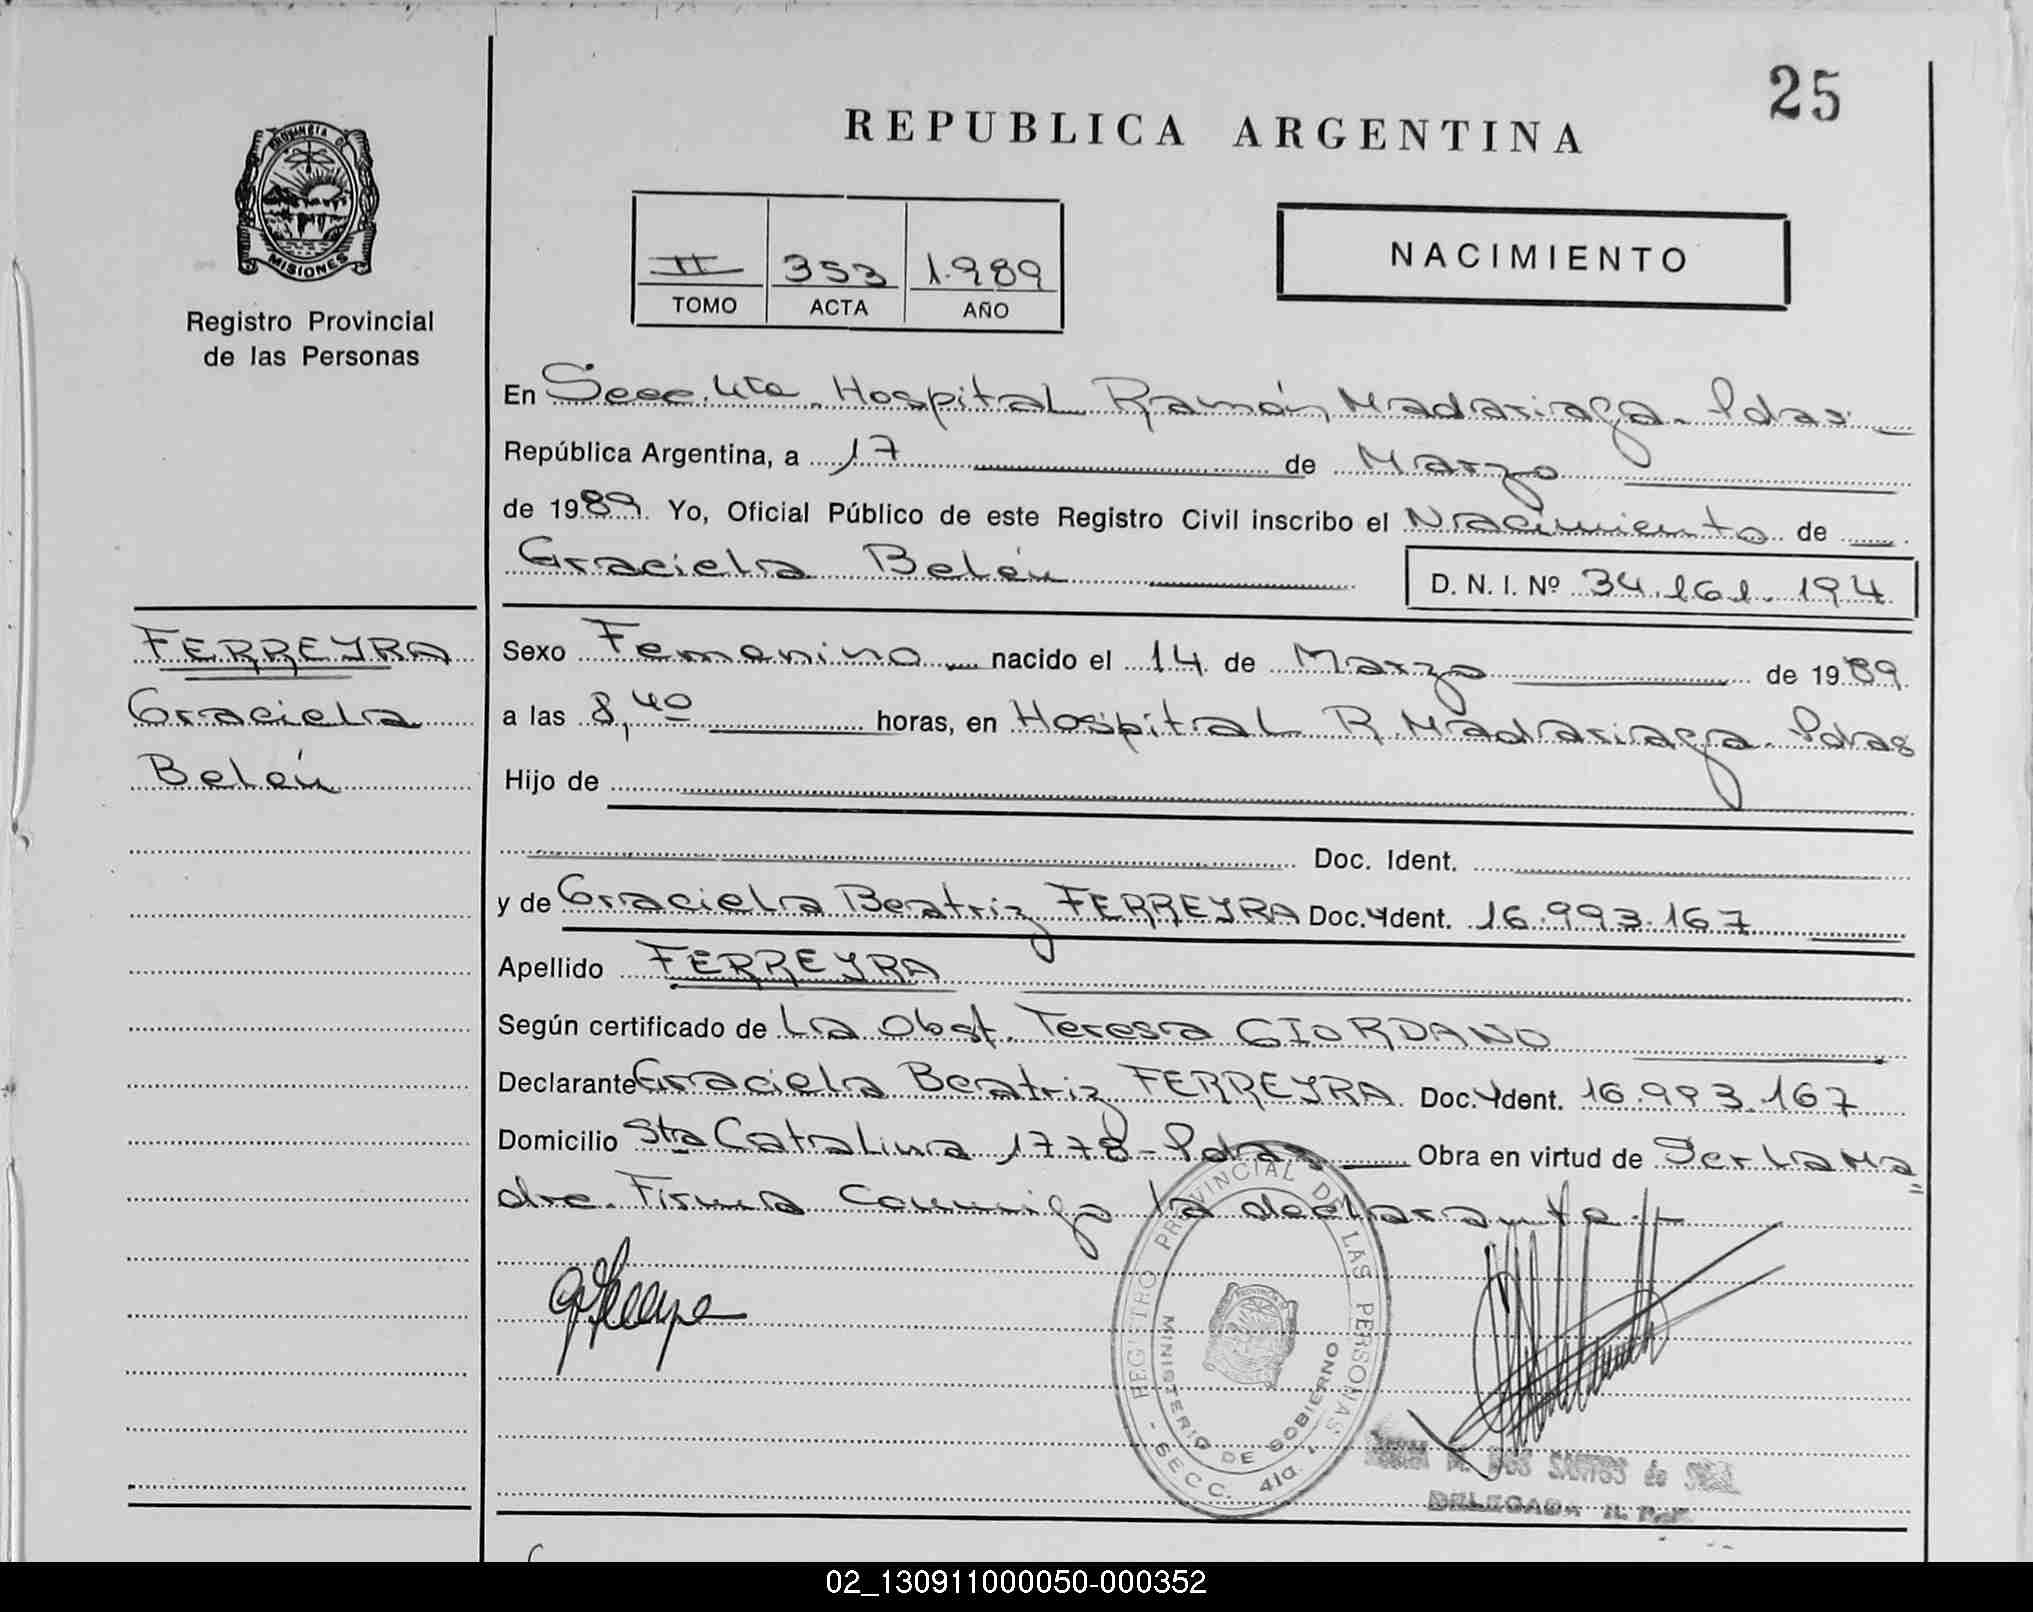 25
REPUBLICA ARGENTINA
PROVINCIA DE
MISIONES
Registro Provincial
de las Personas
II 353 1.989
TOMO ACTA AÑO
NACIMIENTO
En Secc. 4ta. Hospital Ramón Madariaga. Pdas.
República Argentina, a 17 de Marzo
de 1989 Yo, Oficial Público de este Registro Civil inscribo el Nacimiento de
Graciela Belén D. N. I. Nº 34.161.194
FERREYRA
Graciela
Belén
Sexo Femenino nacido el 14 de Marzo de 1989
a las 8,40 horas, en Hospital R. Madariaga. Pdas
Hijo de
Doc. Ident.
y de Graciela Beatriz FERREYRA Doc. Ident. 16.993.167
Apellido FERREYRA
Según certificado de La Obst. Teresa GIORDANO
Declarante Graciela Beatriz FERREYRA Doc. Ident. 16.993.167
Domicilio Sta Catalina 1778 - Pdas Obra en virtud de Ser La Ma=
dre. Firma Conmigo la declarante.-
REGISTRO PROVINCIAL DE LAS PERSONAS
MINISTERIO DE GOBIERNO
- SECC. 4ta. -
M. DOS SANTOS de
DELEGADA R. P. P.
02_130911000050-000352